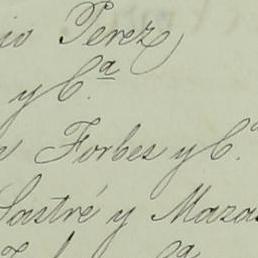 io Perez
y C.ª
Forbes y C.ª
Sastré y Mazas